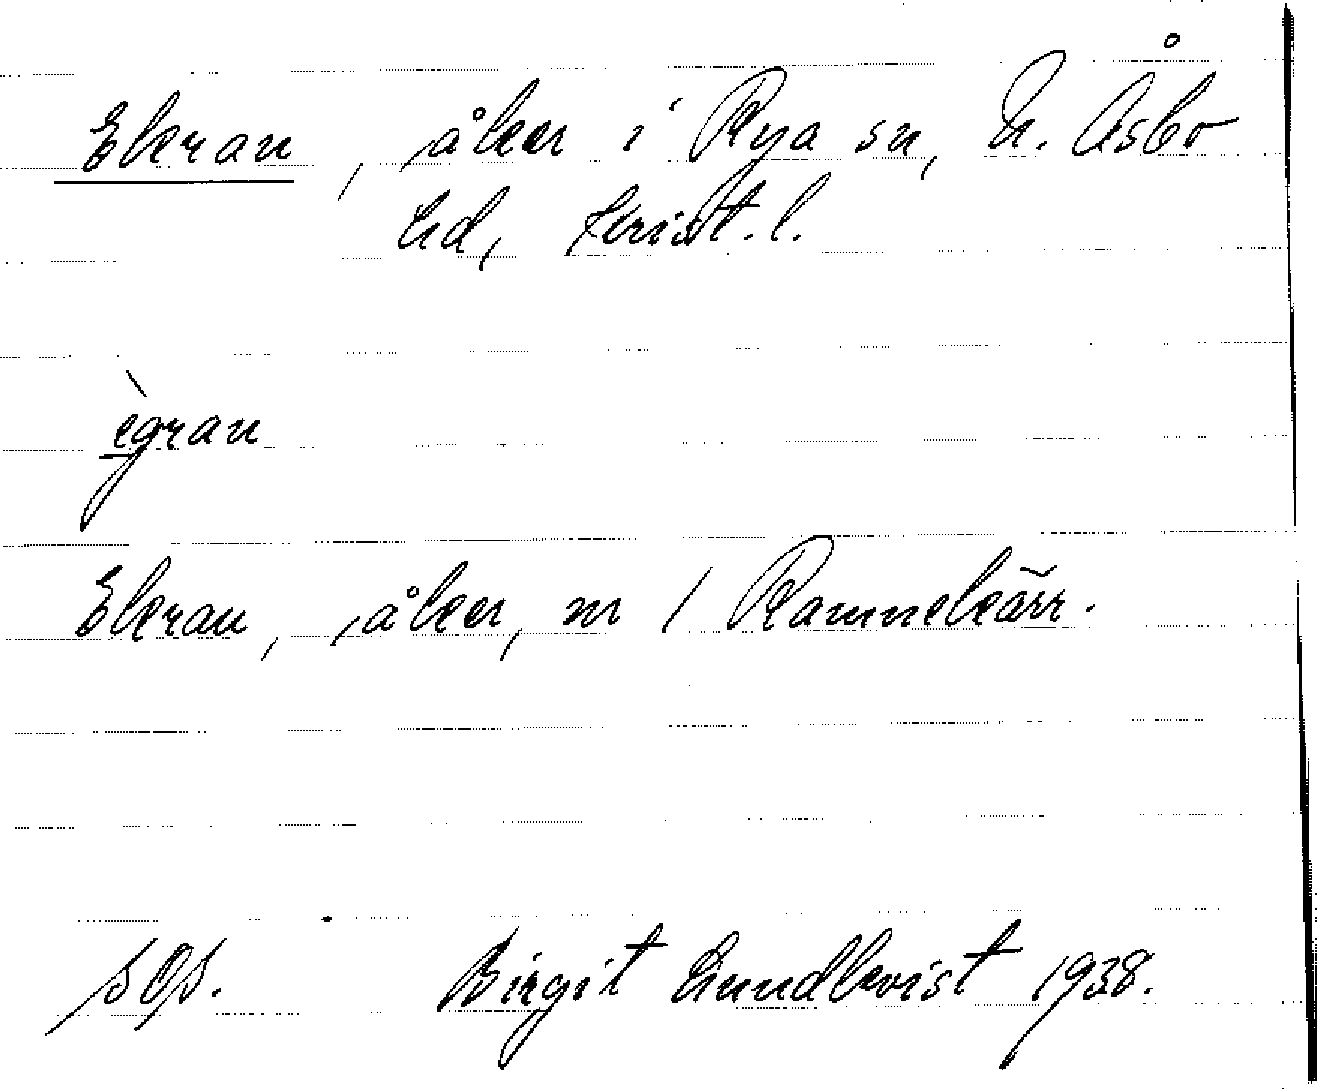 Ekran, åker i Rya sn, N. Åsbo
hd, Krist. l.
ègran
Ekran, åker, nr 1 Rammekärr.
sOs. Birgit Lundkvist 1938.